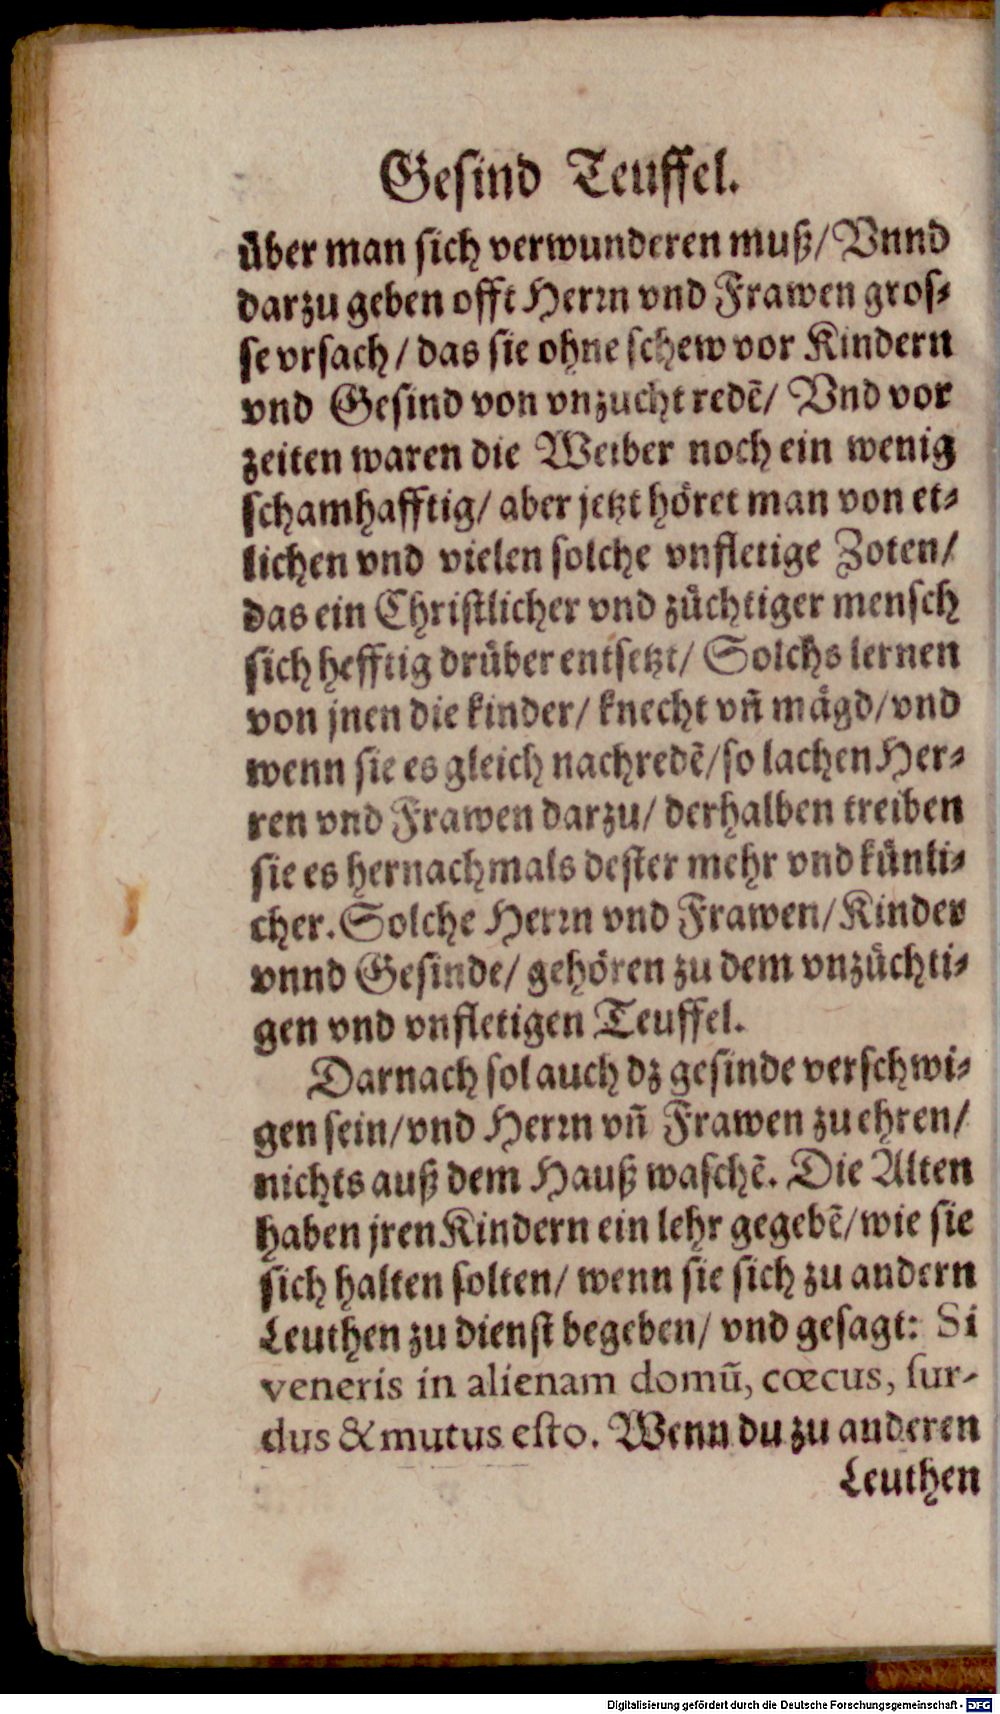 Gesind Teuffel.
uͤber man sich verwunderen muß/ Vnnd
darzu geben offt Herꝛn vnd Frawen gros⸗
se vrsach/ das sie ohne schew vor Kindern
vnd Gesind von vnzucht redẽ/ Vnd vor
zeiten waren die Weiber noch ein wenig
schamhafftig/ aber jetzt hoͤret man von et⸗
lichen vnd vielen solche vnfletige Zoten/
das ein Christlicher vnd zuͤchtiger mensch
sich hefftig druͤber entsetzt/ Solchs lernen
von jnen die kinder/ knecht vñ maͤgd/ vnd
wenn sie es gleich nachredẽ/ so lachen Her⸗
ren vnd Frawen darzu/ derhalben treiben
sie es hernachmals dester mehr vnd kuͤnli⸗
cher. Solche Herꝛn vnd Frawen/ Kinder
vnnd Gesinde/ gehoͤren zu dem vnzuͤchti⸗
gen vnd vnfletigen Teuffel.
Darnach sol auch dz gesinde verschwi⸗
gen sein/ vnd Herꝛn vñ Frawen zu ehren/
nichts auß dem Hauß waschẽ. Die Alten
haben jren Kindern ein lehr gegebẽ/ wie sie
sich halten solten/ wenn sie sich zu andern
Leuthen zu dienst begeben/ vnd gesagt: Si
veneris in alienam domũ, cœcus, sur-
dus & mutus esto. Wenn du zu anderen
Leuthen
Digitalisierung gefördert durch die Deutsche Forschungsgemeinschaft - DFG